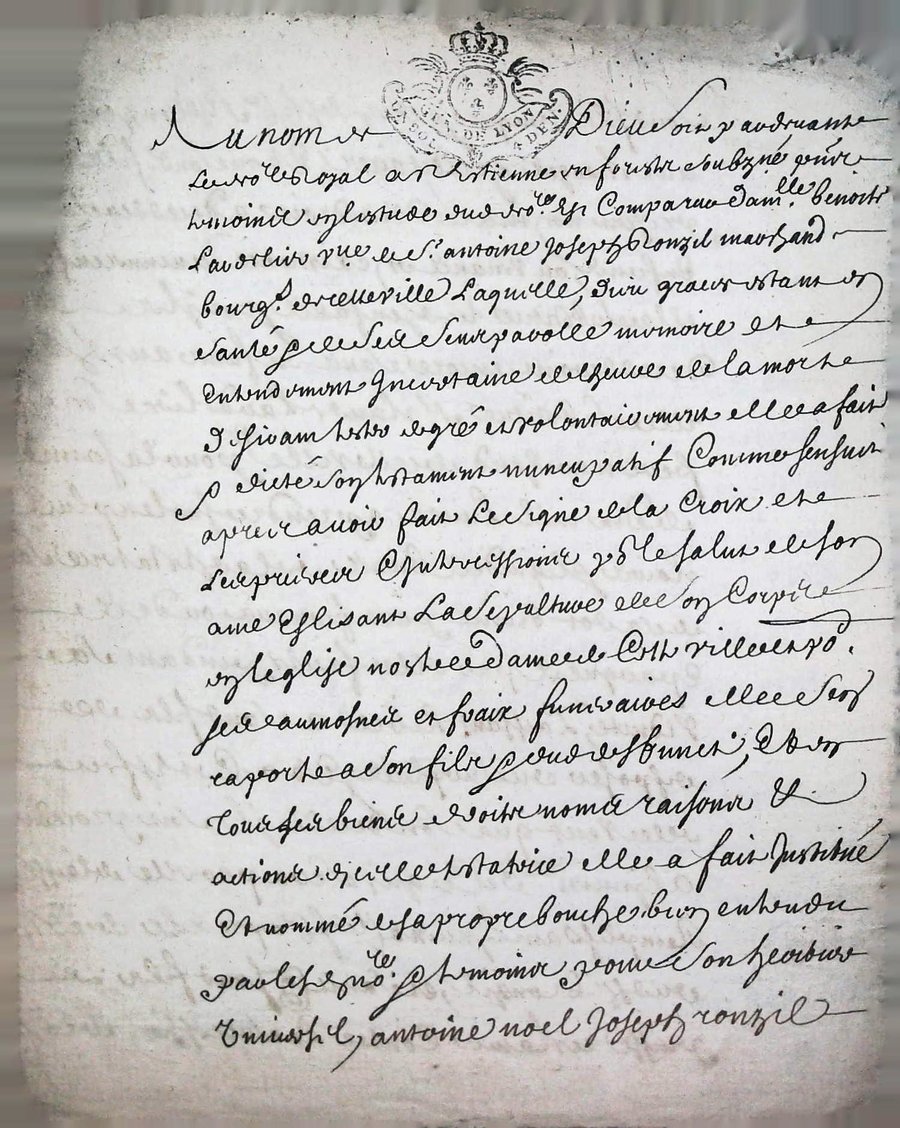 GEN. DE LYON
DEN.
Au nom de Dieu soit pardevant
Le no.re Royal a St Estienne en forests soubzné p
temoins en lestude dud no.re Est Comparue dam.lle benoite
v.ue de Sr. antoine Joseph Ronzil marchand
bourg.s de cette ville Laquelle, dieu graces estant en
santé p de ses sens parolle memoire et
Entendement Incertaine de lheure de la mort
desirant tester de gré et volontairement elle a fait
p dicté son testament nuncupatif Comme sensuit
apres avoir fait Le signe de la Croix et
Les prieres & Intercessions p le salut de son
ame Eslisant La Sepulture de son Corps
en leglise nostre dame de Cette ville et po.
ses aumosnes et fraix funeraires elle sen
raporte a son fils p de ; Et en
Tous ses biens droits noms raisons &
actions dicelle testatrice elle a fait Institué
Et nommé de sa propre bouche bien entendu
par led no.re p temoins pour son heritier
Universel, antoine noel Joseph ronzil